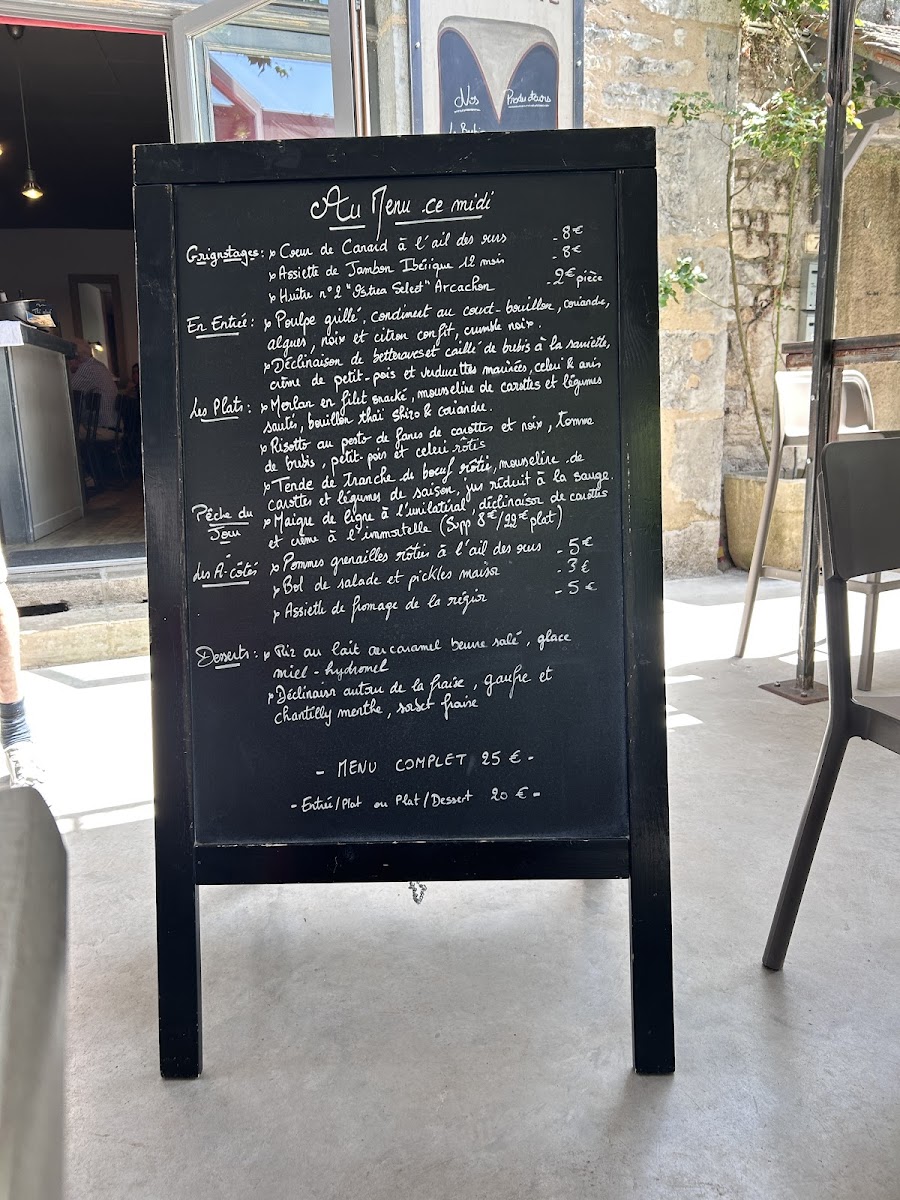 Nos Producteurs
Au Menu ce midi
Grignotages : » Coeur de Canard à l'ail des ours - 8€
» Assiette de Jambon Ibérique 12 mois - 8€
» Huître n°2 "Ostrea Select" Arcachon - 2€ pièce
En Entrée : » Poulpe grillé, condiment au court-bouillon, coriandre,
algues, noix et citron confit, crumble noix.
» Déclinaison de betteraves et caillé de brebis à la sarriette,
crème de petit-pois et verdurettes marinées, celeri & anis
Les Plats : » Merlan en filet snacké, mousseline de carottes et légumes
sautés, bouillon thaï shizo & coriandre.
» Risotto au pesto de fanes de carottes et noix, tomme
de brebis, petit-pois et celeri rôtis
» Tende de tranche de boeuf rôtie, mousseline de
carottes et légumes de saison, jus réduit à la sauge.
Pêche du Jour
» Maigre de ligne à l'unilatéral, déclinaison de carottes
et crème à l'immortelle (Supp 8€/22€ plat)
Les À-côtés » Pommes grenailles rôties à l'ail des ours - 5€
» Bol de salade et pickles maison - 3€
» Assiette de fromage de la région - 5€
Desserts : » Riz au lait au caramel beurre salé, glace
miel - hydromel
» Déclinaison autour de la fraise, gaufre et
chantilly menthe, sorbet fraise
- MENU COMPLET 25 € -
- Entrée/Plat ou Plat/Dessert 20 € -